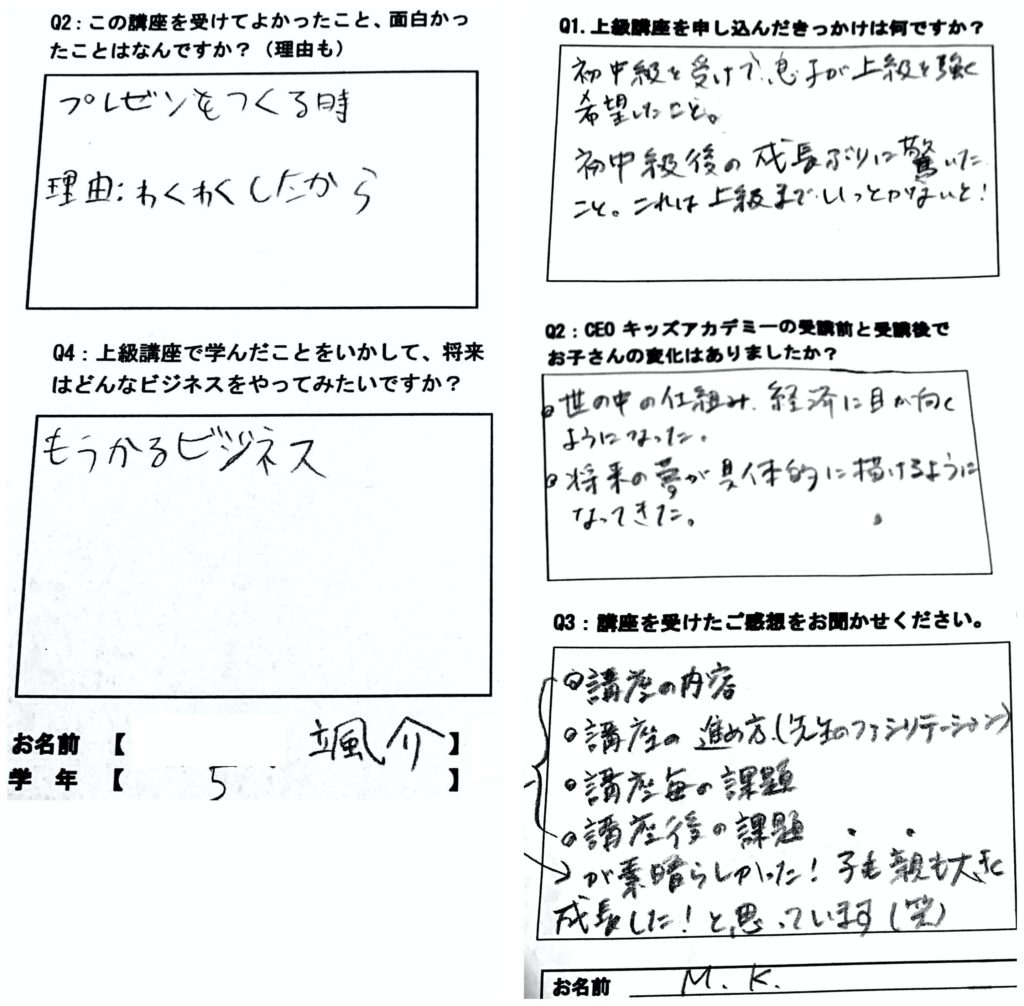 Q2：この講座を受けてよかったこと、面白かっ
たことはなんですか？（理由も）
プレゼンをつくる時
理由：わくわくしたから
Q4：上級講座で学んだことをいかして、将来
はどんなビジネスをやってみたいですか？
もうかるビジネス
お名前 【 颯介 】
学 年 【 5 】
Q1. 上級講座を申し込んだきっかけは何ですか？
初中級を受けて、息子が上級を強く
希望したこと。
初中級後の成長ぶりに驚いた
こと。これは上級までいっとかないと！
Q2：CEO キッズアカデミーの受講前と受講後で
お子さんの変化はありましたか？
○世の中の仕組み、経済に目が向く
ようになった。
○将来の夢が具体的に描けるように
なってきた。
Q3：講座を受けたご感想をお聞かせください。
○講座の内容
○講座の進め方（先生のファシリテーション）
○講座毎の課題
○講座後の課題
→が素晴らしかった！子も親も大きく
成長した！と思っています（笑）
お名前 M. K.